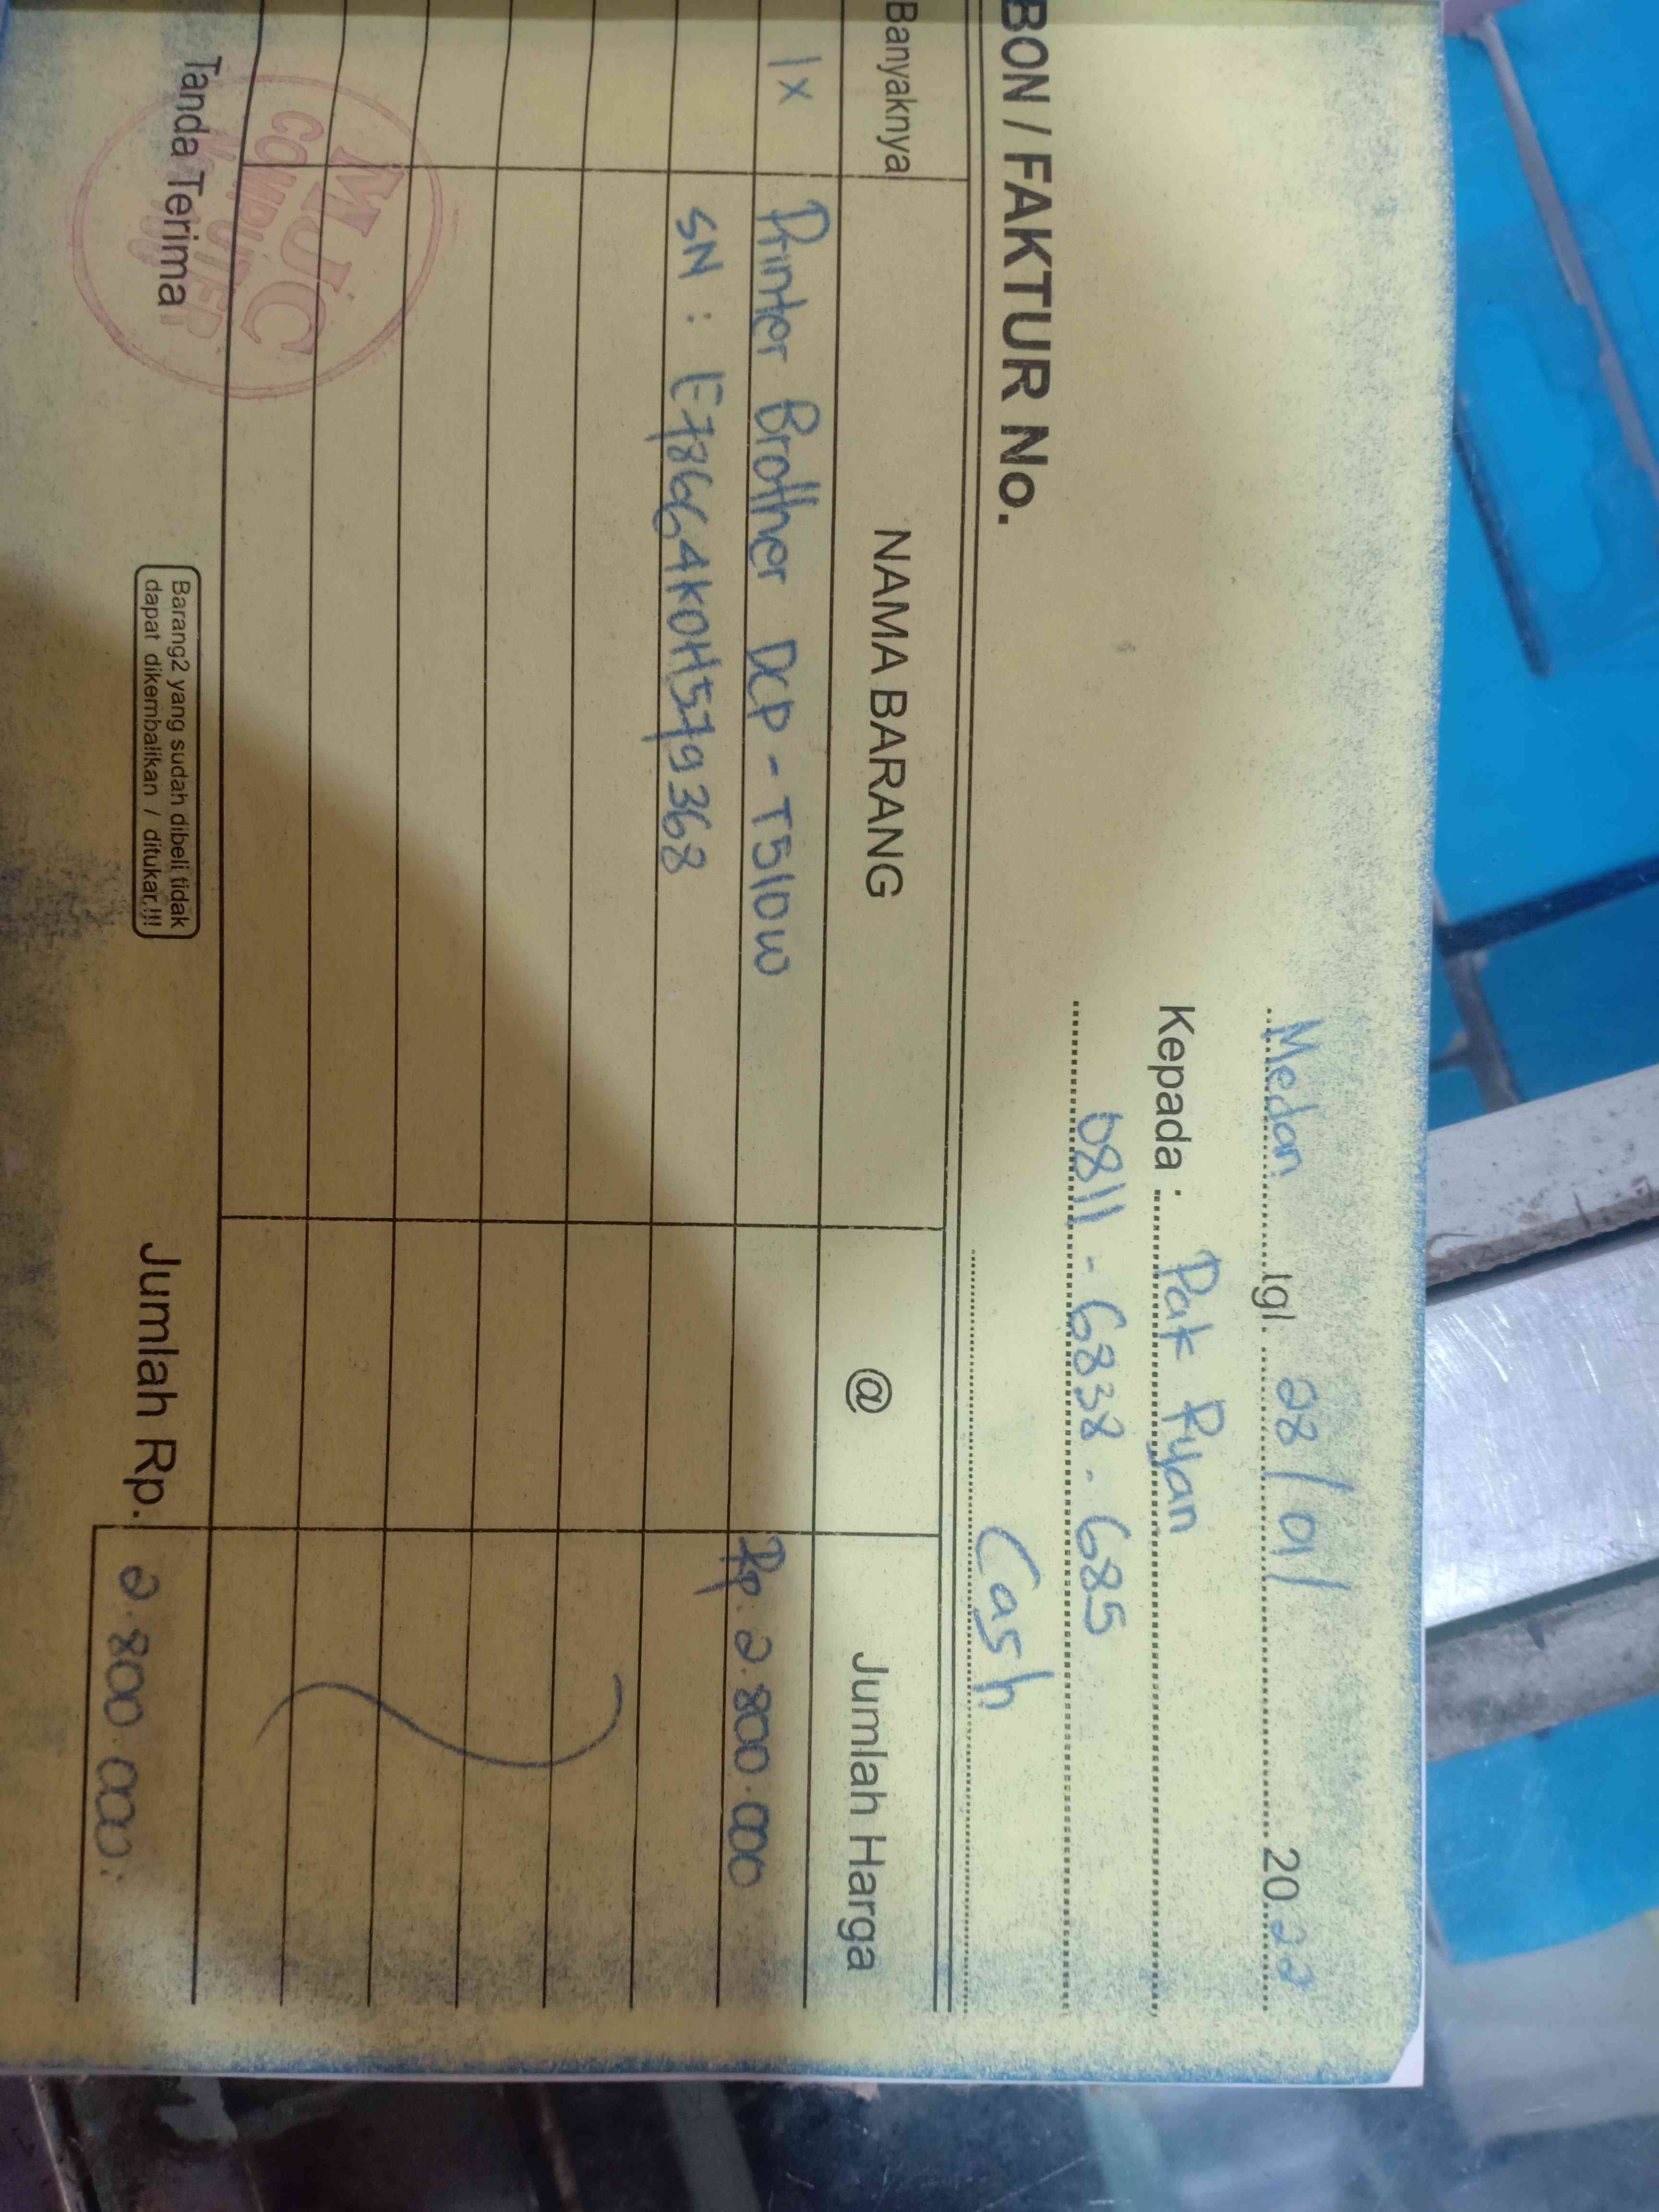 Medan tgl. 28/01/ 2022
Kepada : Pak Ryan
0811 - 6838 - 685
BON / FAKTUR No. Cash
Banyaknya NAMA BARANG @ Jumlah Harga
1x Printer Brother DCP-T510W Rp. 2.800.000
SN : E78664K0H579368
Tanda Terima
MUC
COMPUTER
Barang2 yang sudah dibeli tidak
dapat dikembalikan / ditukar.!!!
Jumlah Rp. 2.800.000.